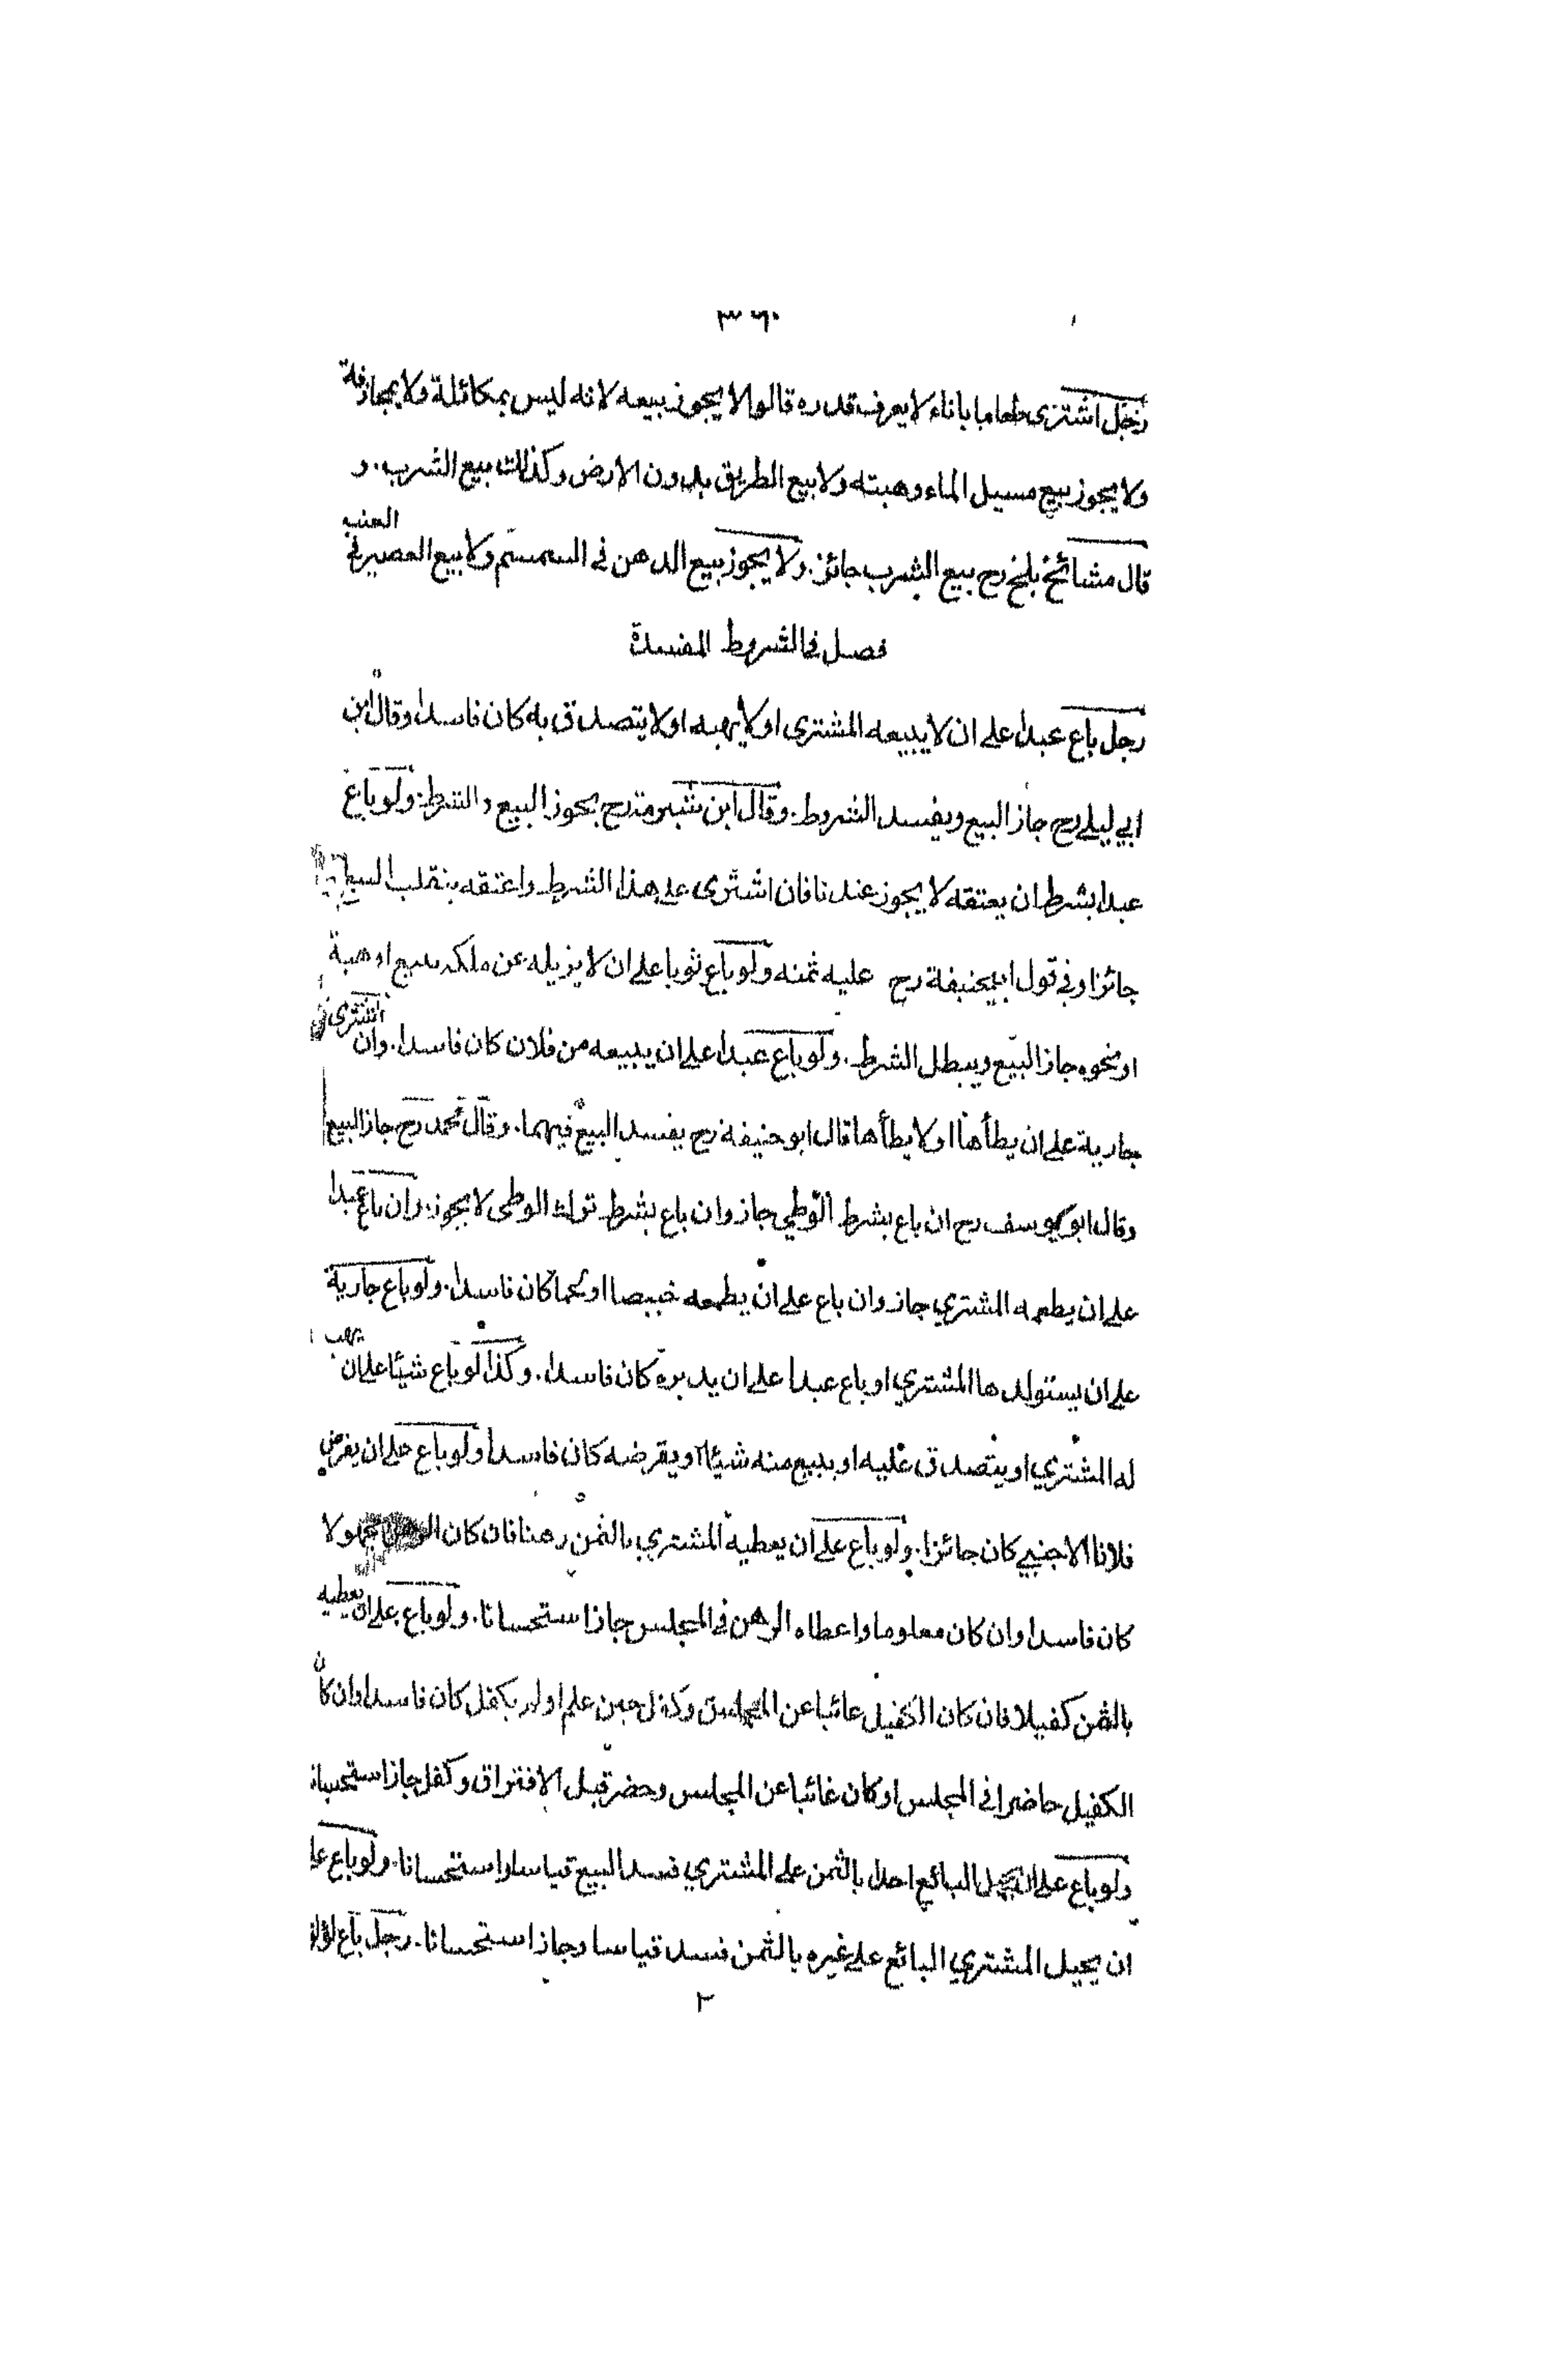 ٣٦٠
رجل اشترى طعاما باناء لا يعرف قدره قالوا لا يجوز بيعه لانه ليس بمكائلة ولا بمجازفة
ولا يجوز بيع مسيل الماء وهبته ولا بيع الطريق بدون الارض وكذلك بيع الشرب. و
قال مشائخ بلخ رح بيع الشرب جائز. ولا يجوز بيع الدهن في السمسم ولا بيع العصير في العنب
فصل في الشروط المفسدة
رجل باع عبدا على ان لا يبيعه المشتري او لا يهبه او لا يتصدق به كان فاسدا وقال ابن
ابي ليلى رح جاز البيع ويفسد الشروط. وقال ابن شبرمة رح يجوز البيع والشرط. ولو باع
عبدا بشرط ان يعتقه لا يجوز عندنا فان اشترى على هذا الشرط واعتقه ينقلب البيع
جائزا وفي قول ابيحنيفة رح عليه ثمنه ولو باع ثوبا على ان لا يزيله عن ملكه ببيع او هبة
او نحوه جاز البيع ويبطل الشرط. ولو باع عبدا على ان يبيعه من فلان كان فاسدا. وان اشترى
جارية على ان يطأها او لا يطأها قال ابو حنيفة رح يفسد البيع فيهما. وقال محمد رح جاز البيع
وقال ابو يوسف رح ان باع بشرط الوطي جاز وان باع بشرط ترك الوطي لا يجوز. وان باع عبدا
على ان يطعمه المشتري جاز وان باع على ان يطعمه خبيصا او لحما كان فاسدا. ولو باع جارية
على ان يستولدها المشتري او باع عبدا على ان يدبره كان فاسدا. وكذا لو باع شيئا على ان يهب
له المشتري او يتصدق عليه او يبيع منه شيئا او يقرضه كان فاسدا ولو باع على ان يقرض
فلانا الاجنبي كان جائزا. ولو باع على ان يعطيه المشتري بالثمن رهنا فان كان الرهن مجهولا
كان فاسدا وان كان معلوما واعطاه الرهن في المجلس جاز استحسانا. ولو باع على ان يعطيه
بالثمن كفيلا فان كان الكفيل غائبا عن المجلس وكفل حين علم او لم يكفل كان فاسدا وان كان
الكفيل حاضرا في المجلس او كان غائبا عن المجلس وحضر قبل الافتراق وكفل جاز استحسانا
ولو باع على ان يحيل البائع احدا بالثمن على المشتري فسد البيع قياسا واستحسانا. ولو باع على
ان يحيل المشتري البائع على غيره بالثمن فسد قياسا وجاز استحسانا. رجل باع
٢